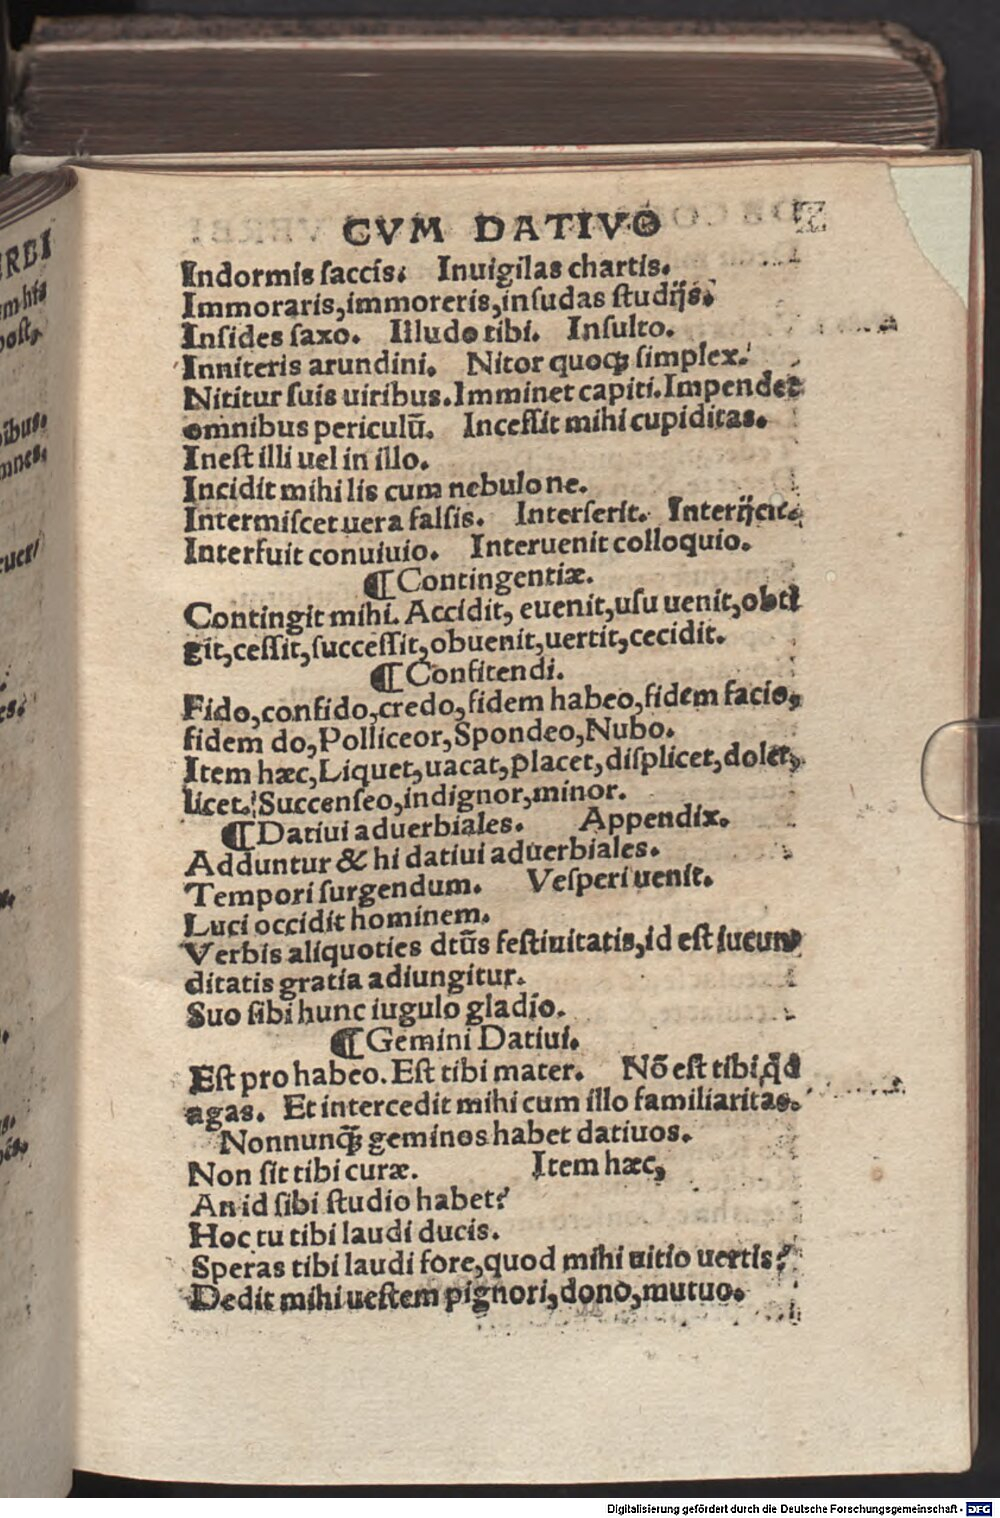 CVM DATIVO
Indormis saccis. Inuigilas chartis.
Immoraris,immoreris,insudas studijs.
Insides saxo. Illudo tibi. Insulto.
Inniteris arundini. Nitor quoqꝫ simplex.
Nititur suis uiribus.Imminet capiti.Impendet
omnibus periculũ. Incessit mihi cupiditas.
Inest illi uel in illo.
Incidit mihi lis cum nebulone.
Intermiscet uera falsis. Interserit. Interijcit.
Interfuit conuiuio. Interuenit colloquio.
¶Contingentiæ.
Contingit mihi. Accidit, euenit,usu uenit,obti
git,cessit,successit,obuenit,uertit,cecidit.
¶Confitendi.
Fido,confido,credo,fidem habeo,fidem facio,
fidem do,Polliceor,Spondeo,Nubo.
Item hæc,Liquet,uacat,placet,displicet,dolet,
licet. Succenseo,indignor,minor.
¶Datiui aduerbiales. Appendix.
Adduntur & hi datiui aduerbiales.
Tempori surgendum. Vesperi uenit.
Luci occidit hominem.
Verbis aliquoties dtũs festiuitatis,id est iucun
ditatis gratia adiungitur.
Suo sibi hunc iugulo gladio.
¶Gemini Datiui.
Est pro habeo.Est tibi mater. Nõ est tibi,qd
agas. Et intercedit mihi cum illo familiaritas.
Nonnunqꝫ geminos habet datiuos.
Non sit tibi curæ. Item hæc,
An id sibi studio habet?
Hoc tu tibi laudi ducis.
Speras tibi laudi fore,quod mihi uitio uertis?
Dedit mihi uestem pignori,dono,mutuo.
Digitalisierung gefördert durch die Deutsche Forschungsgemeinschaft - DFG